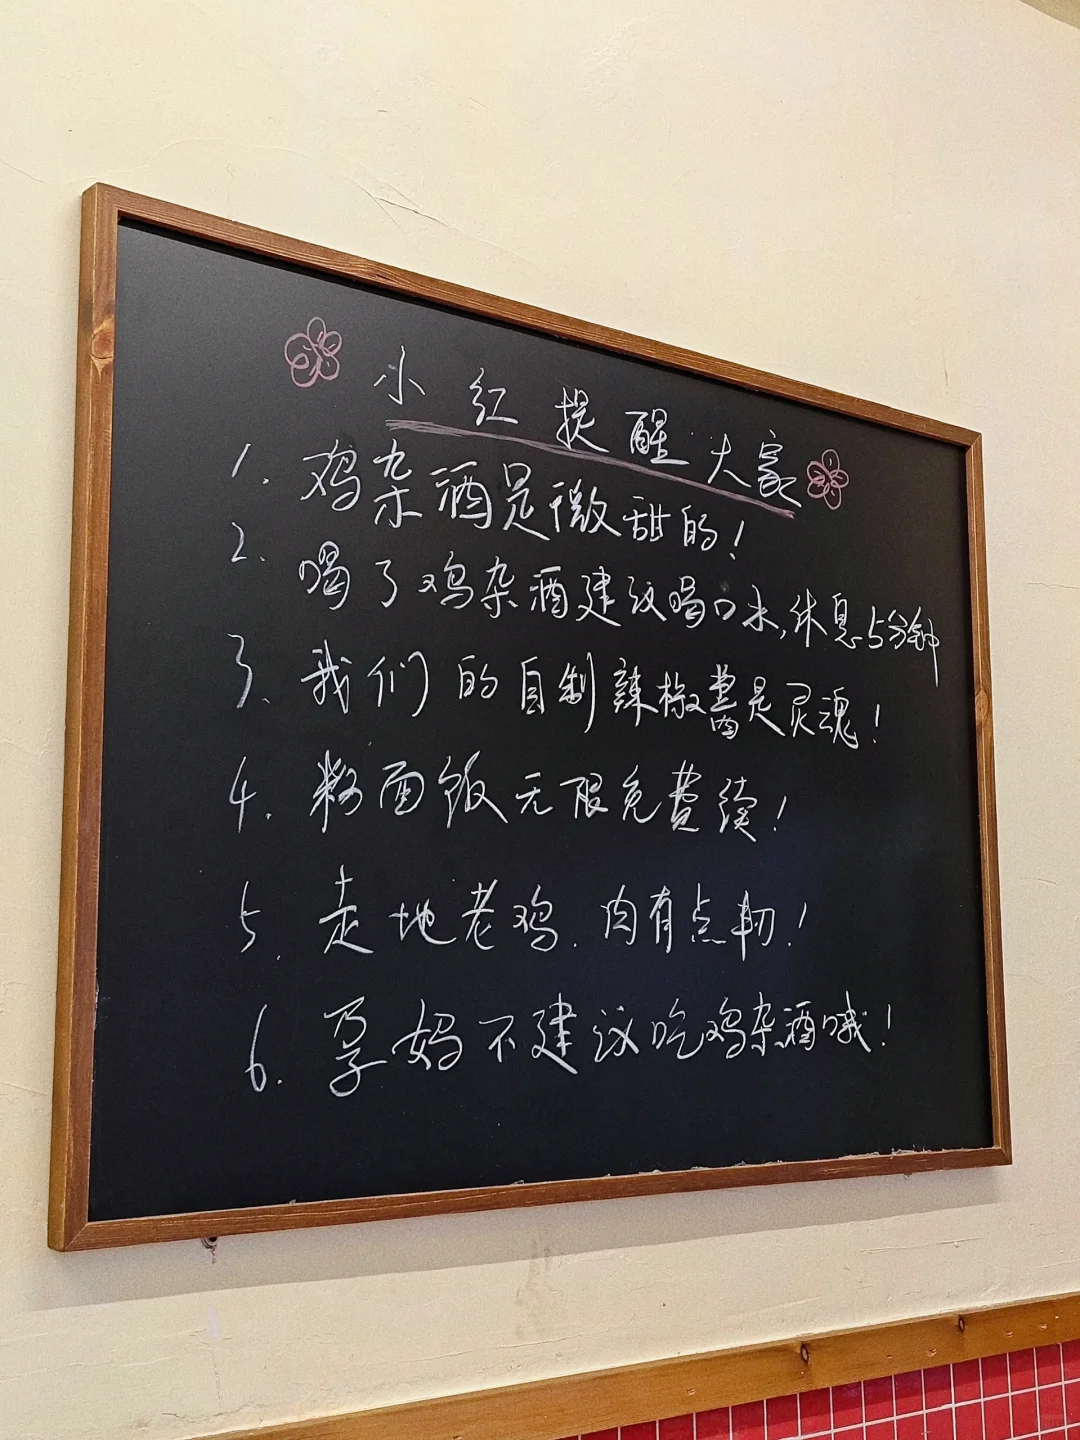 小红提醒大家
1. 鸡杂酒是微甜的!
2. 喝了鸡杂酒建议喝口水,休息5分钟
3. 我们的自制辣椒酱是灵魂!
4. 粉面饭无限免费续!
5. 走地老鸡.肉有点韧!
6. 孕妈不建议吃鸡杂酒哦!